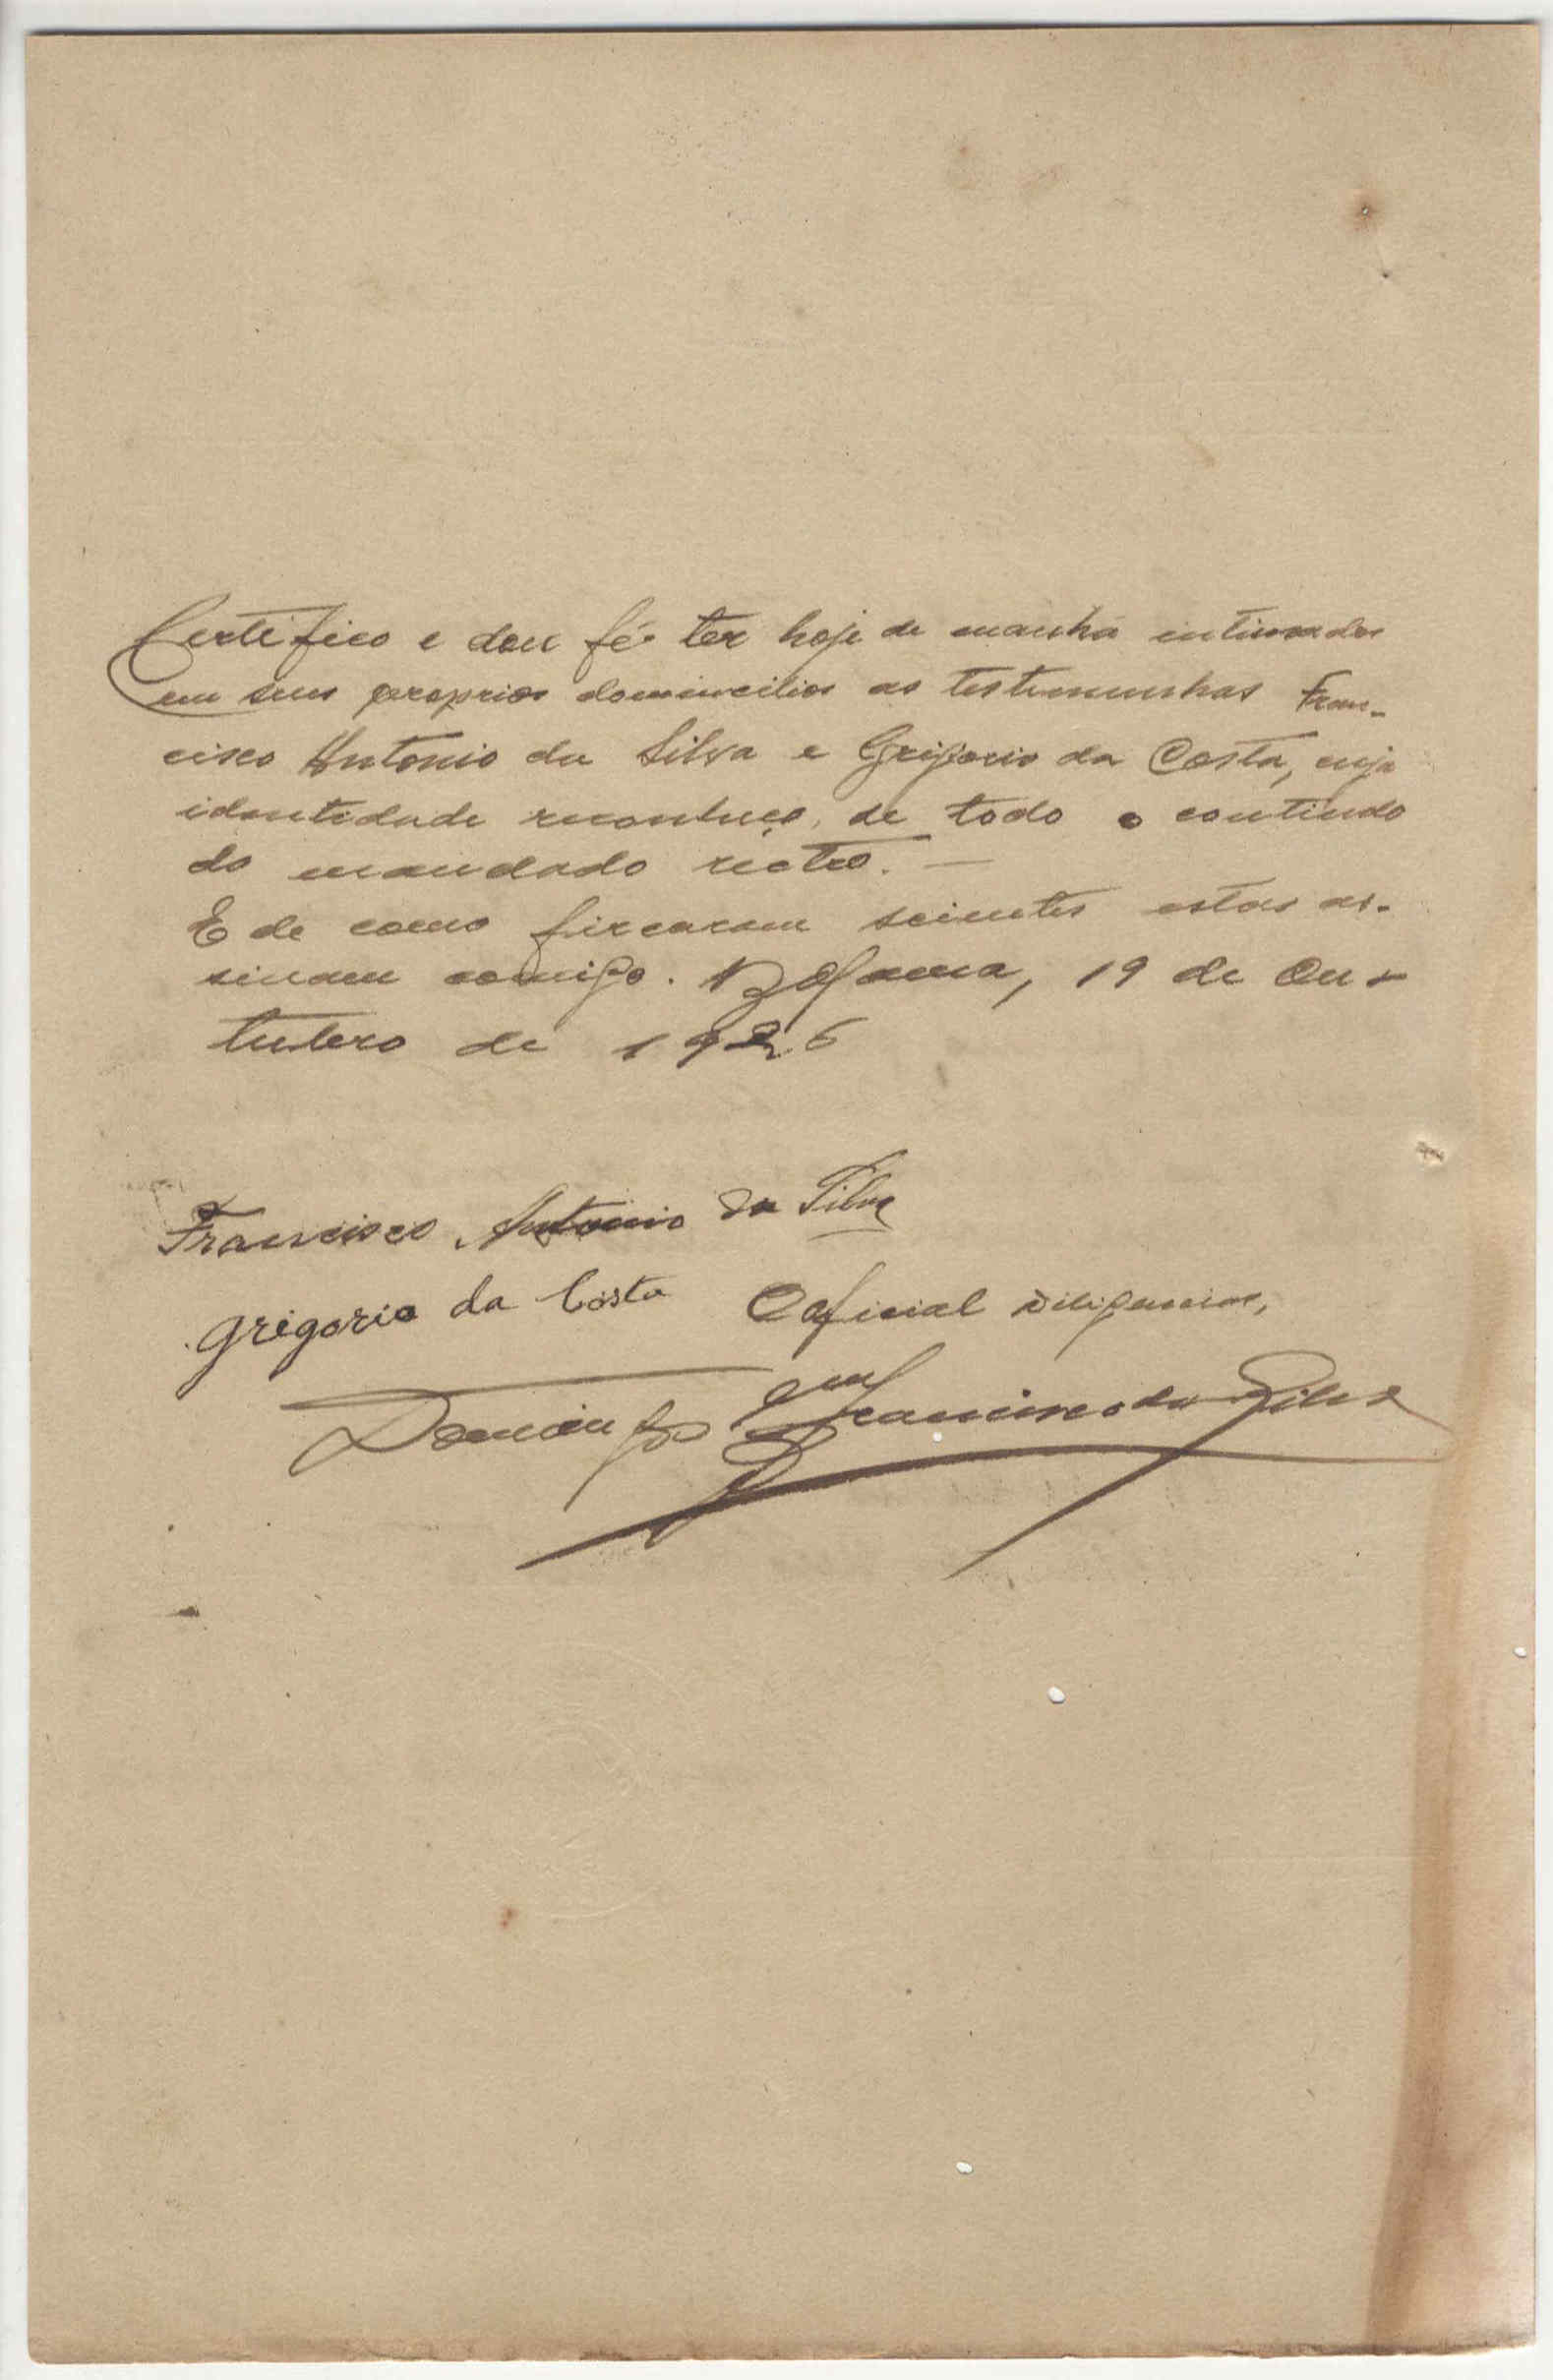 Certifico e dou fé ter hoje de manhã intimados
em seus proprios domincilios as testemunhas Fran-
cisco Antonio da Silva e Grigorio da Costa, cuja
idantidade reconheço, de todo o contindo
do mandado rectro. —
E de como fircaram scientes estas as-
sinam comigo. Bolama, 19 de Ou-
tubro de 1926
Francisco Antonio da Silva
Grigorio da Costa Oaficial Diligencias,
Domingos Francisco da Silva